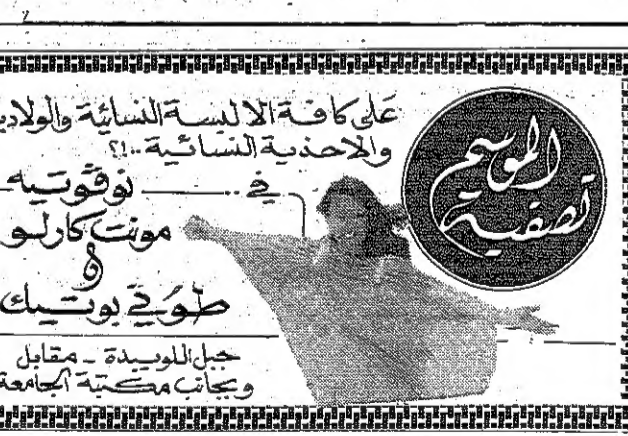 تصفية
الموسم
على كافة الالبسة النسائية والولادي
والاحذية النسائية ..!؟
في .. نوڤوتيه
مونت كارلو
و
طوني بوتيك
جبل اللويبدة - مقابل
وبجانب مكتبة الجامعة